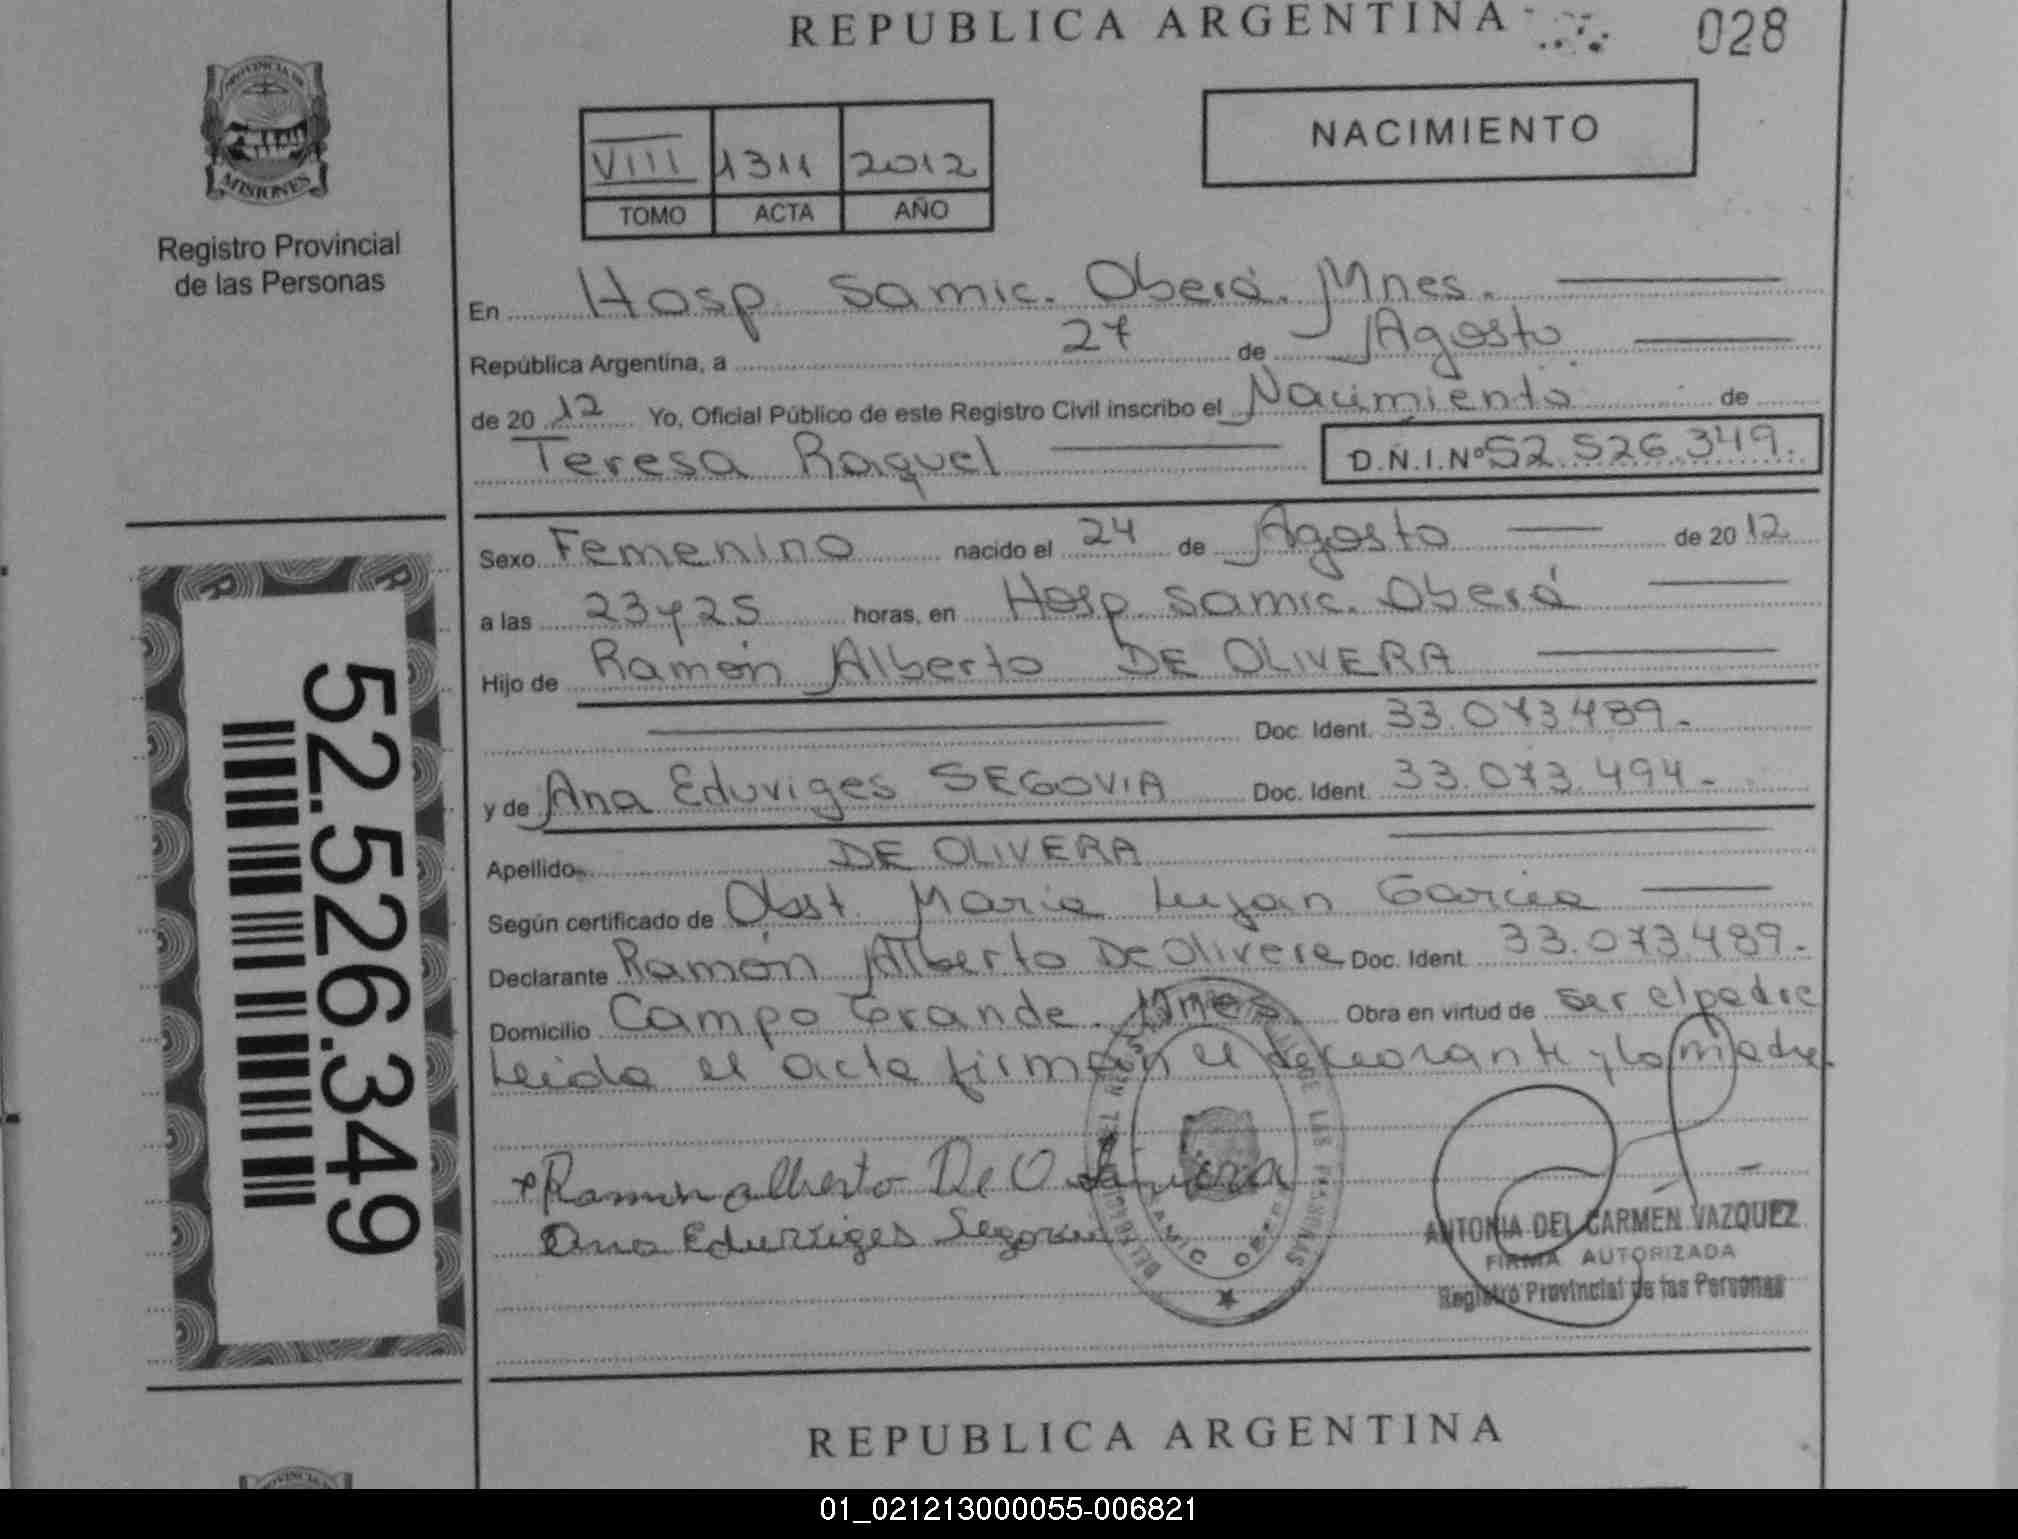 REPUBLICA ARGENTINA
028
PROVINCIA DE
MISIONES
Registro Provincial
de las Personas
VIII 1311 2012
TOMO ACTA AÑO
NACIMIENTO
En Hosp. Samic. Oberá. Mnes.
República Argentina, a 27 de Agosto
de 2012 Yo, Oficial Público de este Registro Civil inscribo el Nacimiento de
Teresa Raquel D.N.I.Nº 52.526.349.
Sexo Femenino nacido el 24 de Agosto de 2012
a las 23y25 horas, en Hosp. Samic. Oberá
Hijo de Ramón Alberto DE OLIVERA
Doc. Ident. 33.073.489.-
y de Ana Eduviges SEGOVIA Doc. Ident. 33.073.494.-
Apellido DE OLIVERA
Según certificado de Obst. Maria Lujan Garcia
Declarante Ramón Alberto De Olivera Doc. Ident. 33.073.489.-
Domicilio Campo Grande. Mnes. Obra en virtud de ser el padre
Leida el acta firman el declarante y la madre.
Ramon alberto De Olivera
Ana Eduviges Segovia
ANTONIA DEL CARMEN VAZQUEZ
FIRMA AUTORIZADA
Registro Provincial de las Personas
52.526.349
REPUBLICA ARGENTINA
01_021213000055-006821